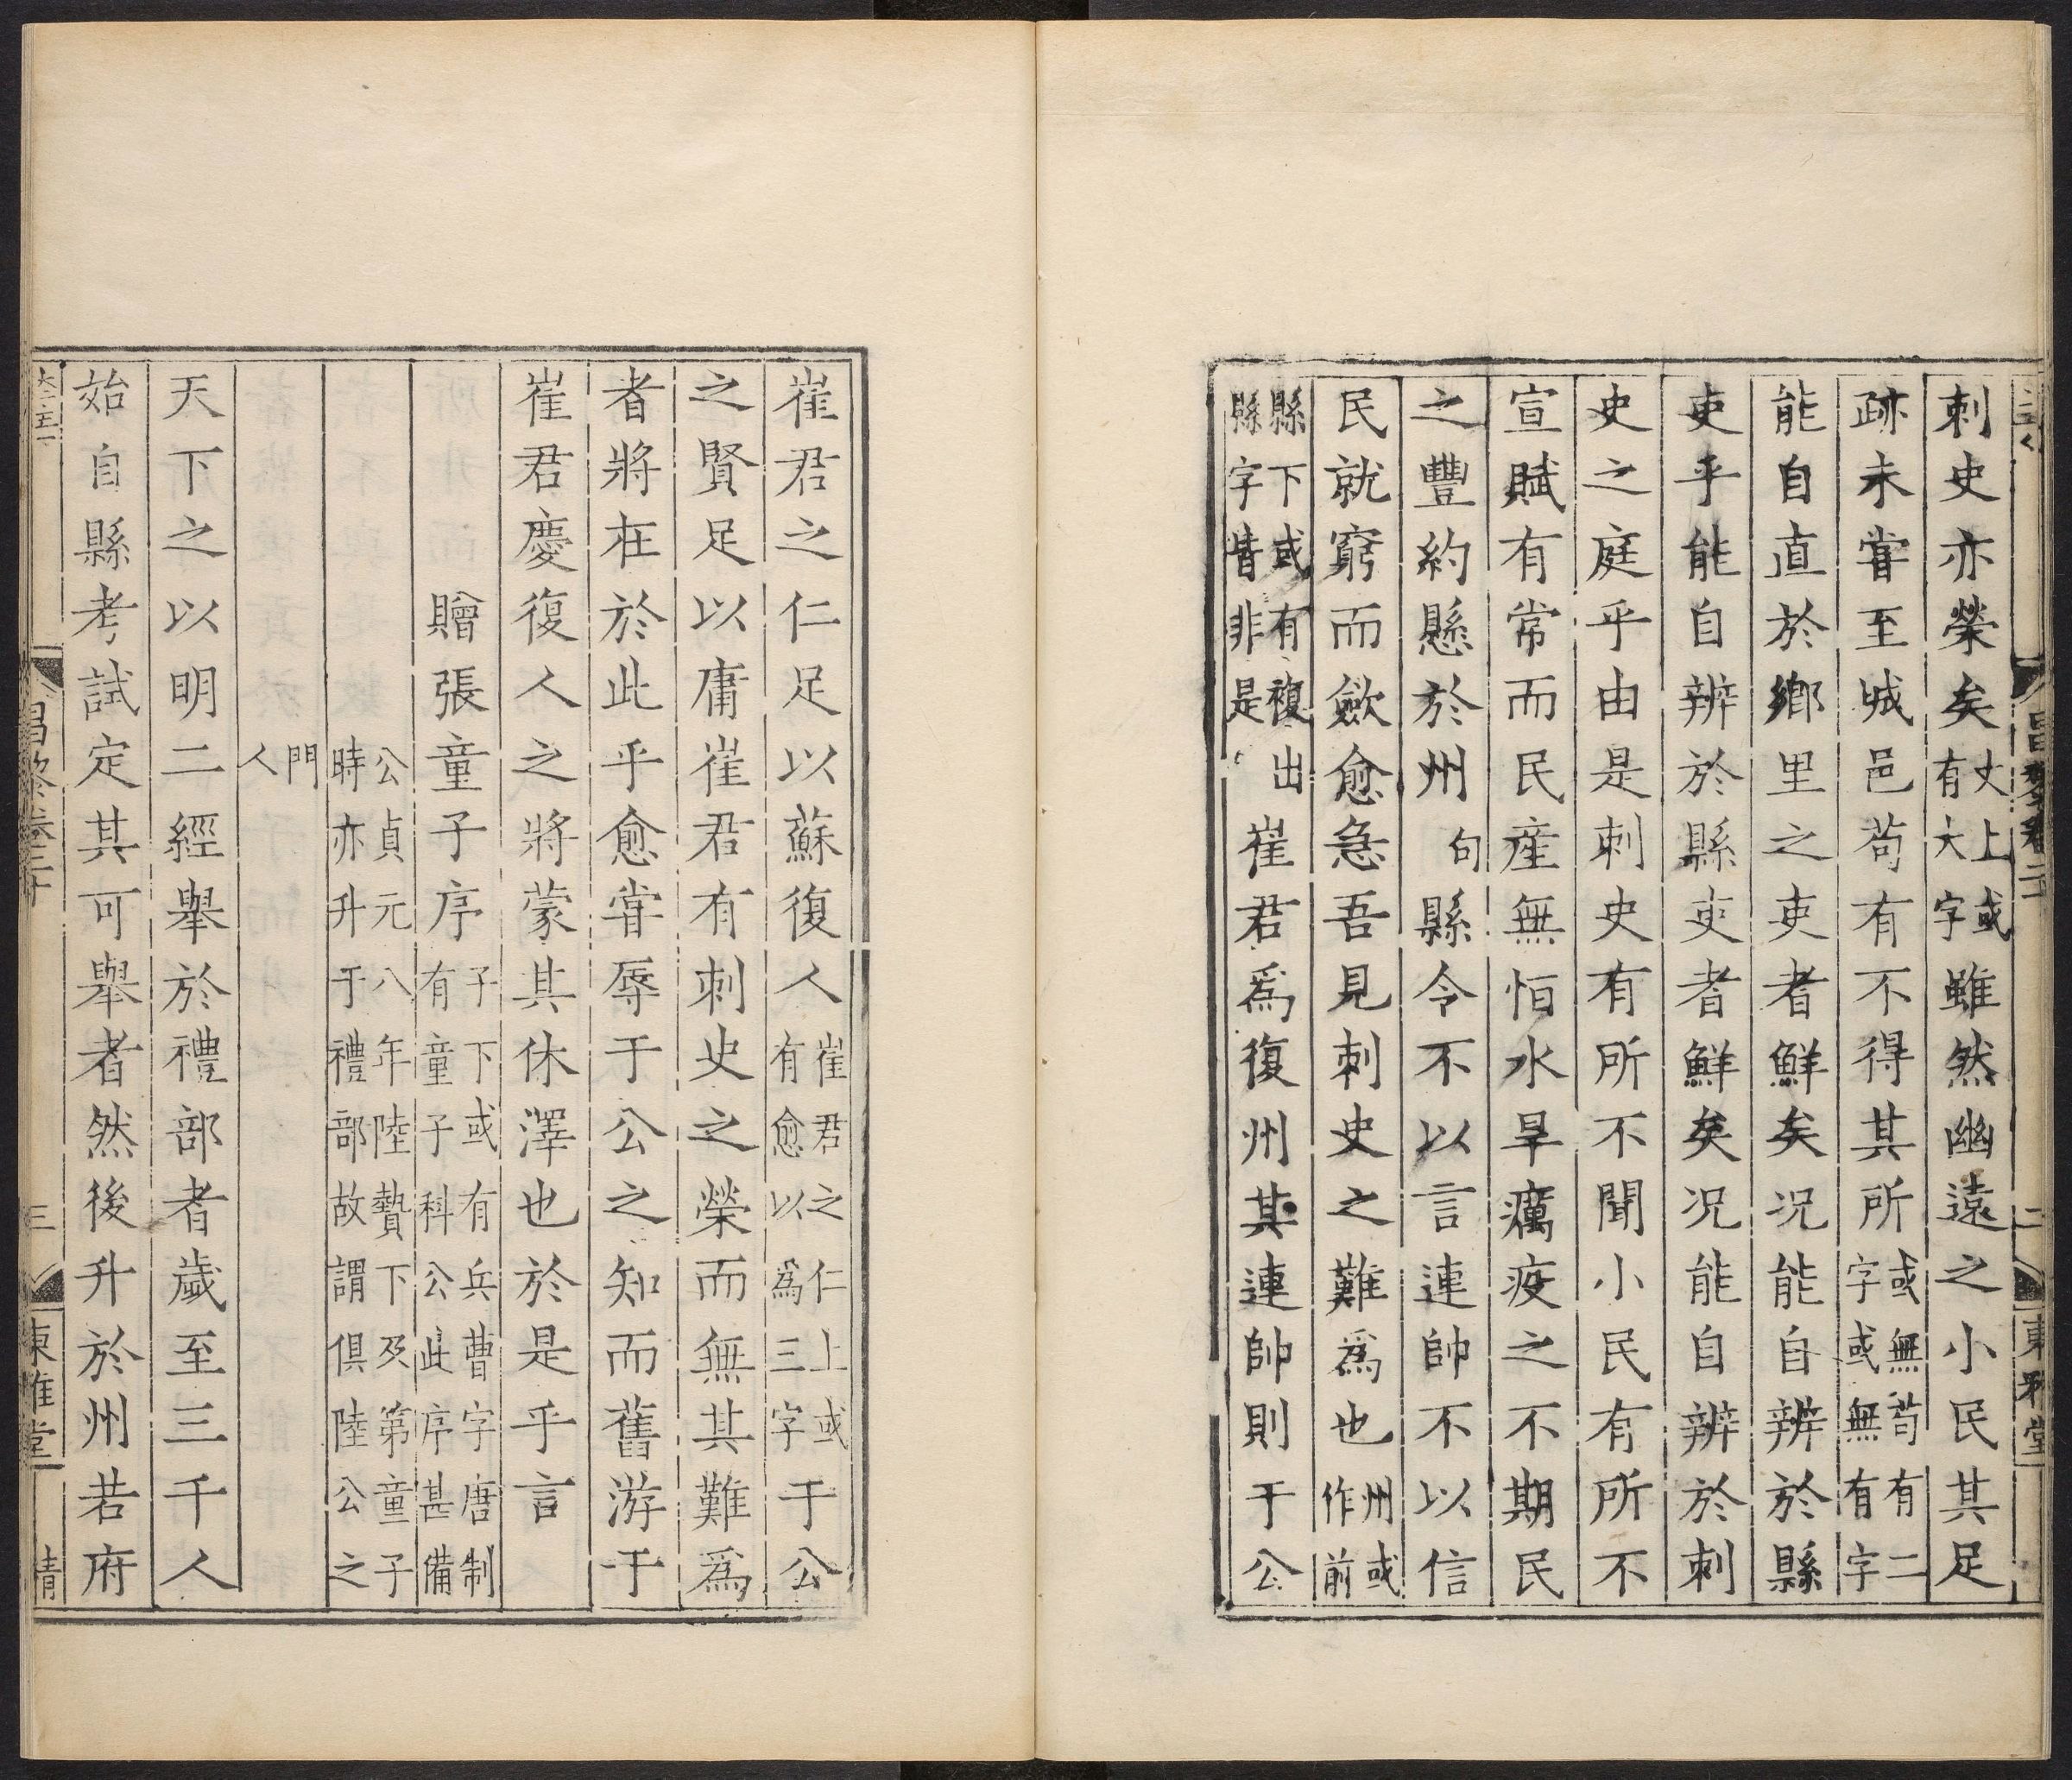 刺史亦榮矣丈上或有大字雖然幽遠之小民其足
跡未嘗至城邑苟有不得其所或無苟有二字或無有字
能自直於鄉里之吏者鮮矣況能自辨於縣
吏乎能自辨於縣吏者鮮矣況能自辨於刺
史之庭乎由是刺史有所不聞小民有所不
宣賦有常而民産無恒水旱癘疫之不期民
之豐約懸於州句縣令不以言連帥不以信
民就窮而斂愈急吾見刺史之難爲也州或作前
縣下或有複出縣字皆非是崔君爲復州其連帥則于公
崔君之仁足以蘇復人崔君之仁上或有愈以爲三字于公
之賢足以庸崔君有刺史之榮而無其難爲
者將在於此乎愈嘗辱于公之知而舊游于
崔君慶復人之將蒙其休澤也於是乎言
贈張童子序子下或有兵曹字唐制有童子科公此序甚備
公貞元八年陸贄下及第童子時亦升于禮部故謂俱陸公之
門人
天下之以明二經舉於禮部者歲至三千人
始自縣考試定其可舉者然後升於州若府
三
東雅堂